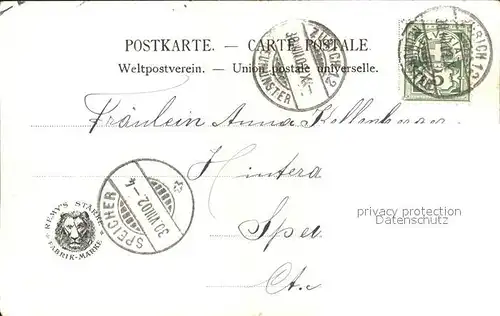 POSTKARTE. — CARTE POSTALE.
Weltpostverein. — Union postale universelle.
ZÜRICH 12
5
ZÜRICH 12
Fräulein Anna Kellenberger
Hintera
Spei
Ct.
SPEICHER
30.VIII.02.–4
REMY'S STÄRKE
FABRIK-MARKE
privacy protection
Datenschutz